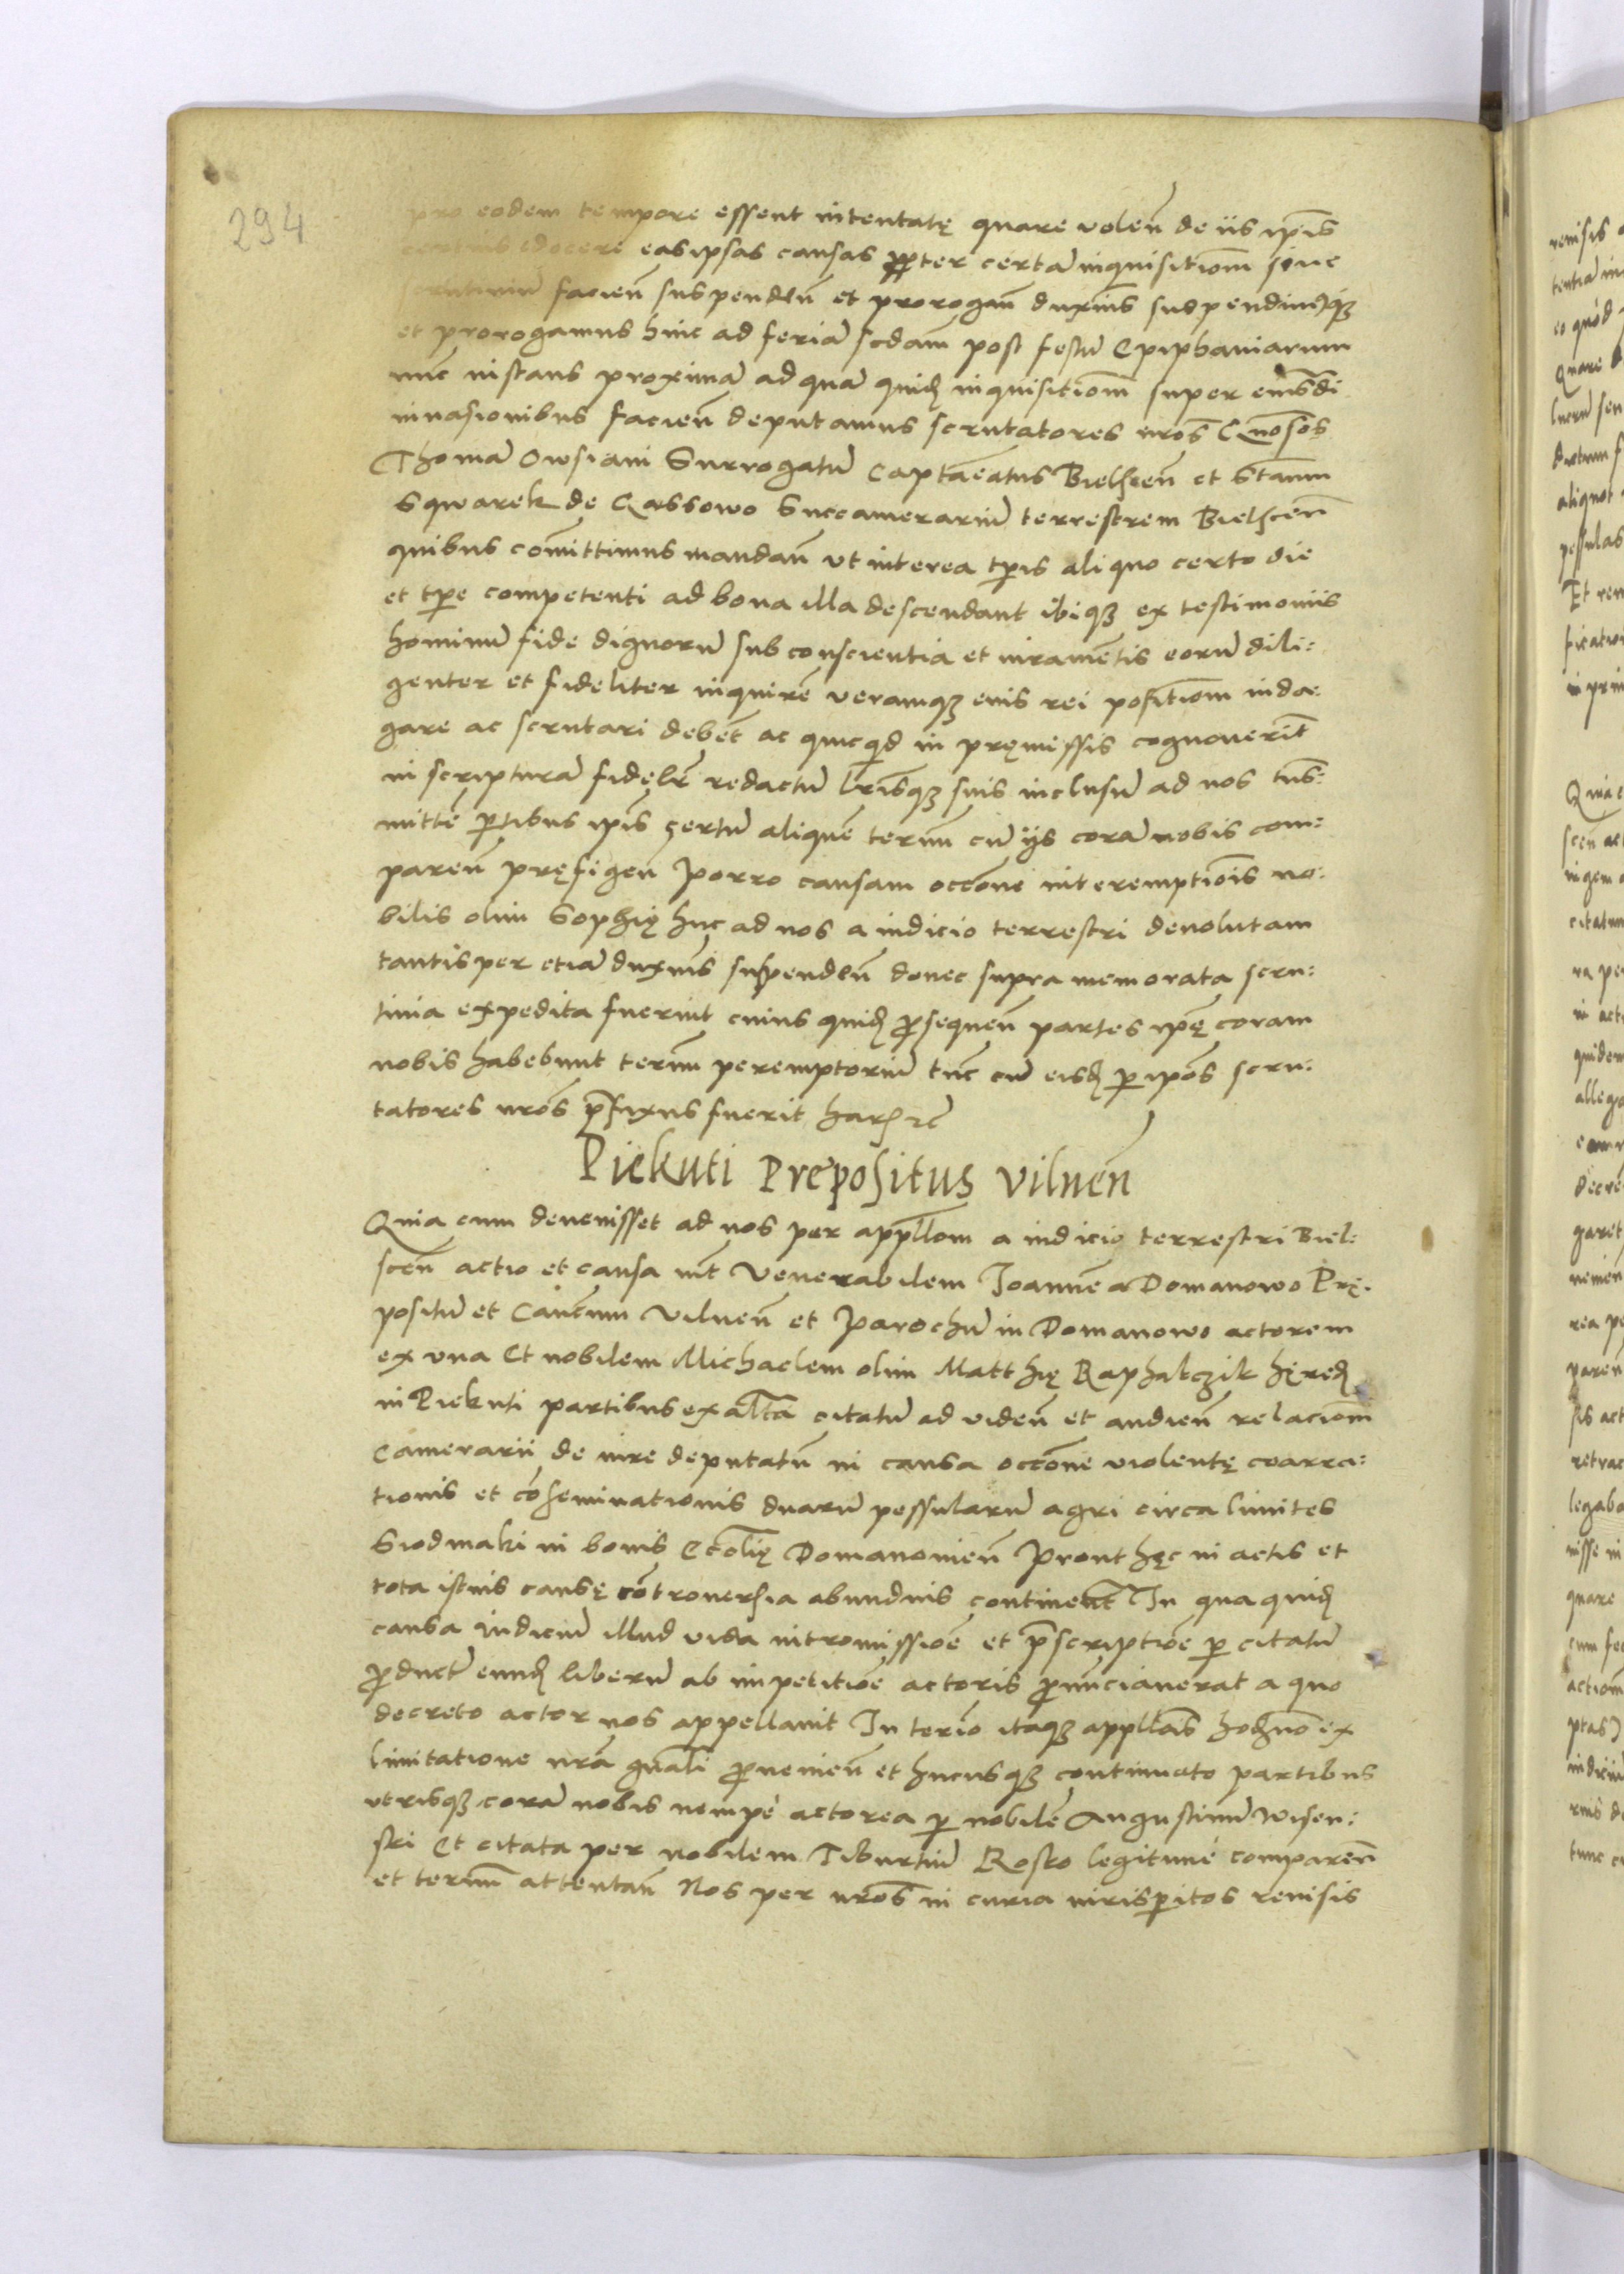 294
pro eodem tempore essent intentatę quare volen̄ de iis ip̄is
edoceri eas ipsas causas propter certā inquisitiom̄ siue
scrutiniū facien̄ suspendēn̄ et prorogan̄ duxim̄s suspendimusq3
et prorogamus hinc ad feriā scd̄am post festū Epiphaniarum
nunc instans proximā ad quā quid̄ inquisitiom̄ super eiusd̄i
inuasionibus facien̄ deputamus scrutatores nr̄os Gn̄osos
Thomā Owsiani Surrogatū Captān̄eatus Bielscen̄ et Stan̄um
Sqwarek de Qassowo Succamerariū terrestrem Bielscen̄
quibus com̄ittimus mandan̄ vt interea tp̄is aliquo certo die
et tp̄e competenti ad bona illa descendant ibiq3 ex testimoniis
hominū fide dignorū sub conscientia et iuramētis eorū dili:
genter et fideliter inquirē veramq3 eius rei positiom̄ inda:
gare ac scrutari debēt ac quicq̄d in pręmissis cognouerīt
in scripturā fidelr̄ redactū lr̄isq3 suis inclusū ad nos tn̄s:
mittē p̄tibus ip̄is certū aliquē termī cū ijs corā nobis com:
paren̄ pręfigen̄ Porro causam occōne interemptiōis no:
bilis olim Sophię huc ad nos a iudicio terrestri deuolutam
tantisper etiā duxim̄s suspendēn̄ donec supra memorata scru:
tinia expedita fuerint cuius quid̄ p̄sequen̄ partes ip̄ę coram
nobis habebunt termī peremptoriū tūc cū eisd̄ p̄ ip̄os scru:
tatores nr̄os p̄fixus fuerit har̄ 2c̄
Piekuti Prepositus Vilnen̄
Quia cum deuenisset ad nos per appll̄om a iudicio terrestri Biel:
scen̄ actio et causa int̄ Venerabilem Joannē a Domanowo Prę:
positū et Can̄cum Vilnen̄ et Parochū in Domanowo actorem
ex vna Et nobilem Michaelem olim Matthię Raphalczik hęred̄
in Piekuti partibus ex alt̄a citatū ad viden̄ et audien̄ relaciom̄
Camerarii de iure deputatū in causa occōne violentę coarra:
tionis et cōseminationis duarū pessularū agri circa limites
Siodmaki in bonis Eccl̄ię Domanouien̄ Prout hęc in actis et
tota istius causę cōtrouersia abundius continent̄ In qua quid̄
causa Iudiciū illud visa intromissiōe et p̄scriptiōe p̄ citatū
p̄duct̄ eund̄ liberū ab impetitiōe actoris p̄nūnciauerat a quo
decreto actor nos appellauit In terīo itaq3 appll̄ōis hod̄no ex
limitatione nr̄a gn̄ali p̄uenien̄ et hucusq3 continuato partibus
vtrisq3 corā nobis nempe actorea p̄ nobilē Augustinū Wisen:
ski Et citata per nobilem Tiburtiū Rosko legitime comparen̄
et termī attentan̄ Nos per nr̄os in curia iurisp̄itos reuisis